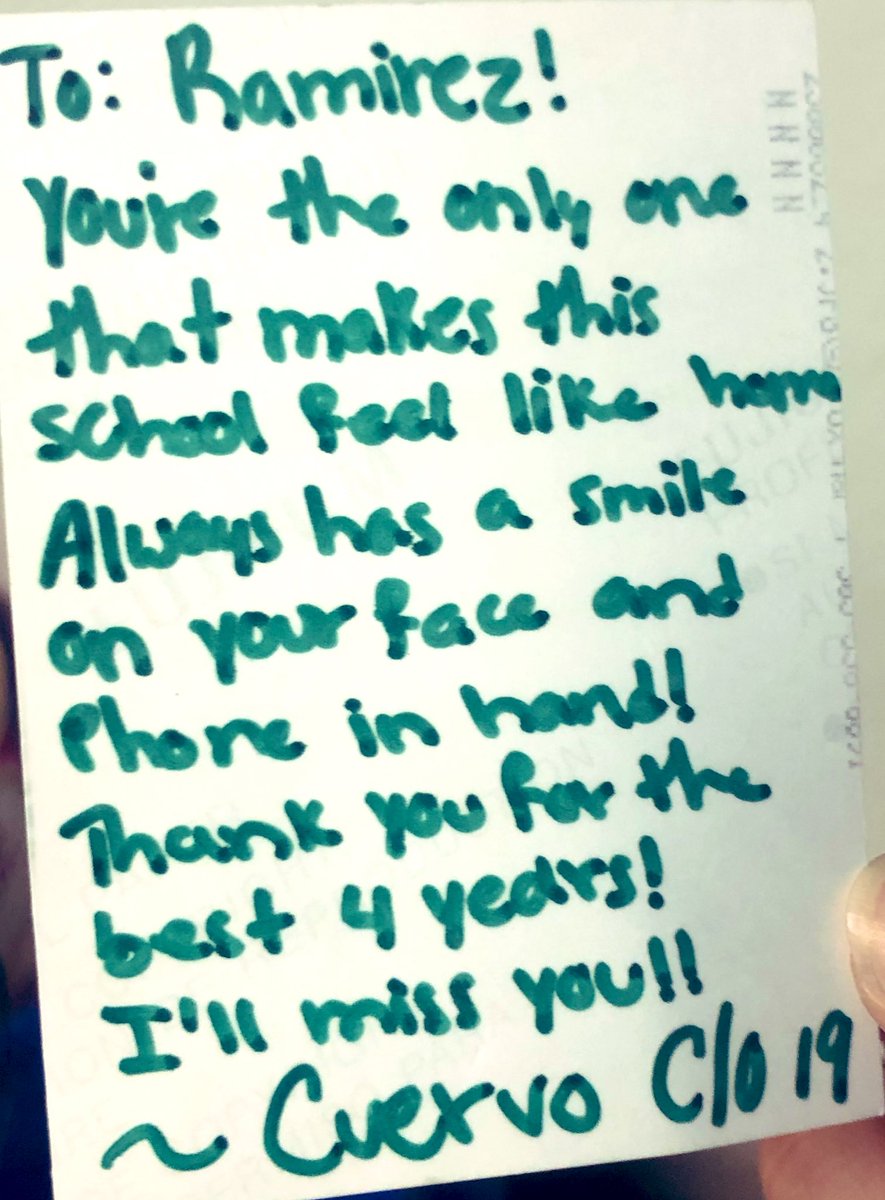 To: Ramirez!
You're the only one
that makes this
school feel like home
Always has a smile
on your face and
Phone in hand!
Thank you for the
best 4 years!
I'll miss you!!
~ Cuervo C/O 19
NNNN